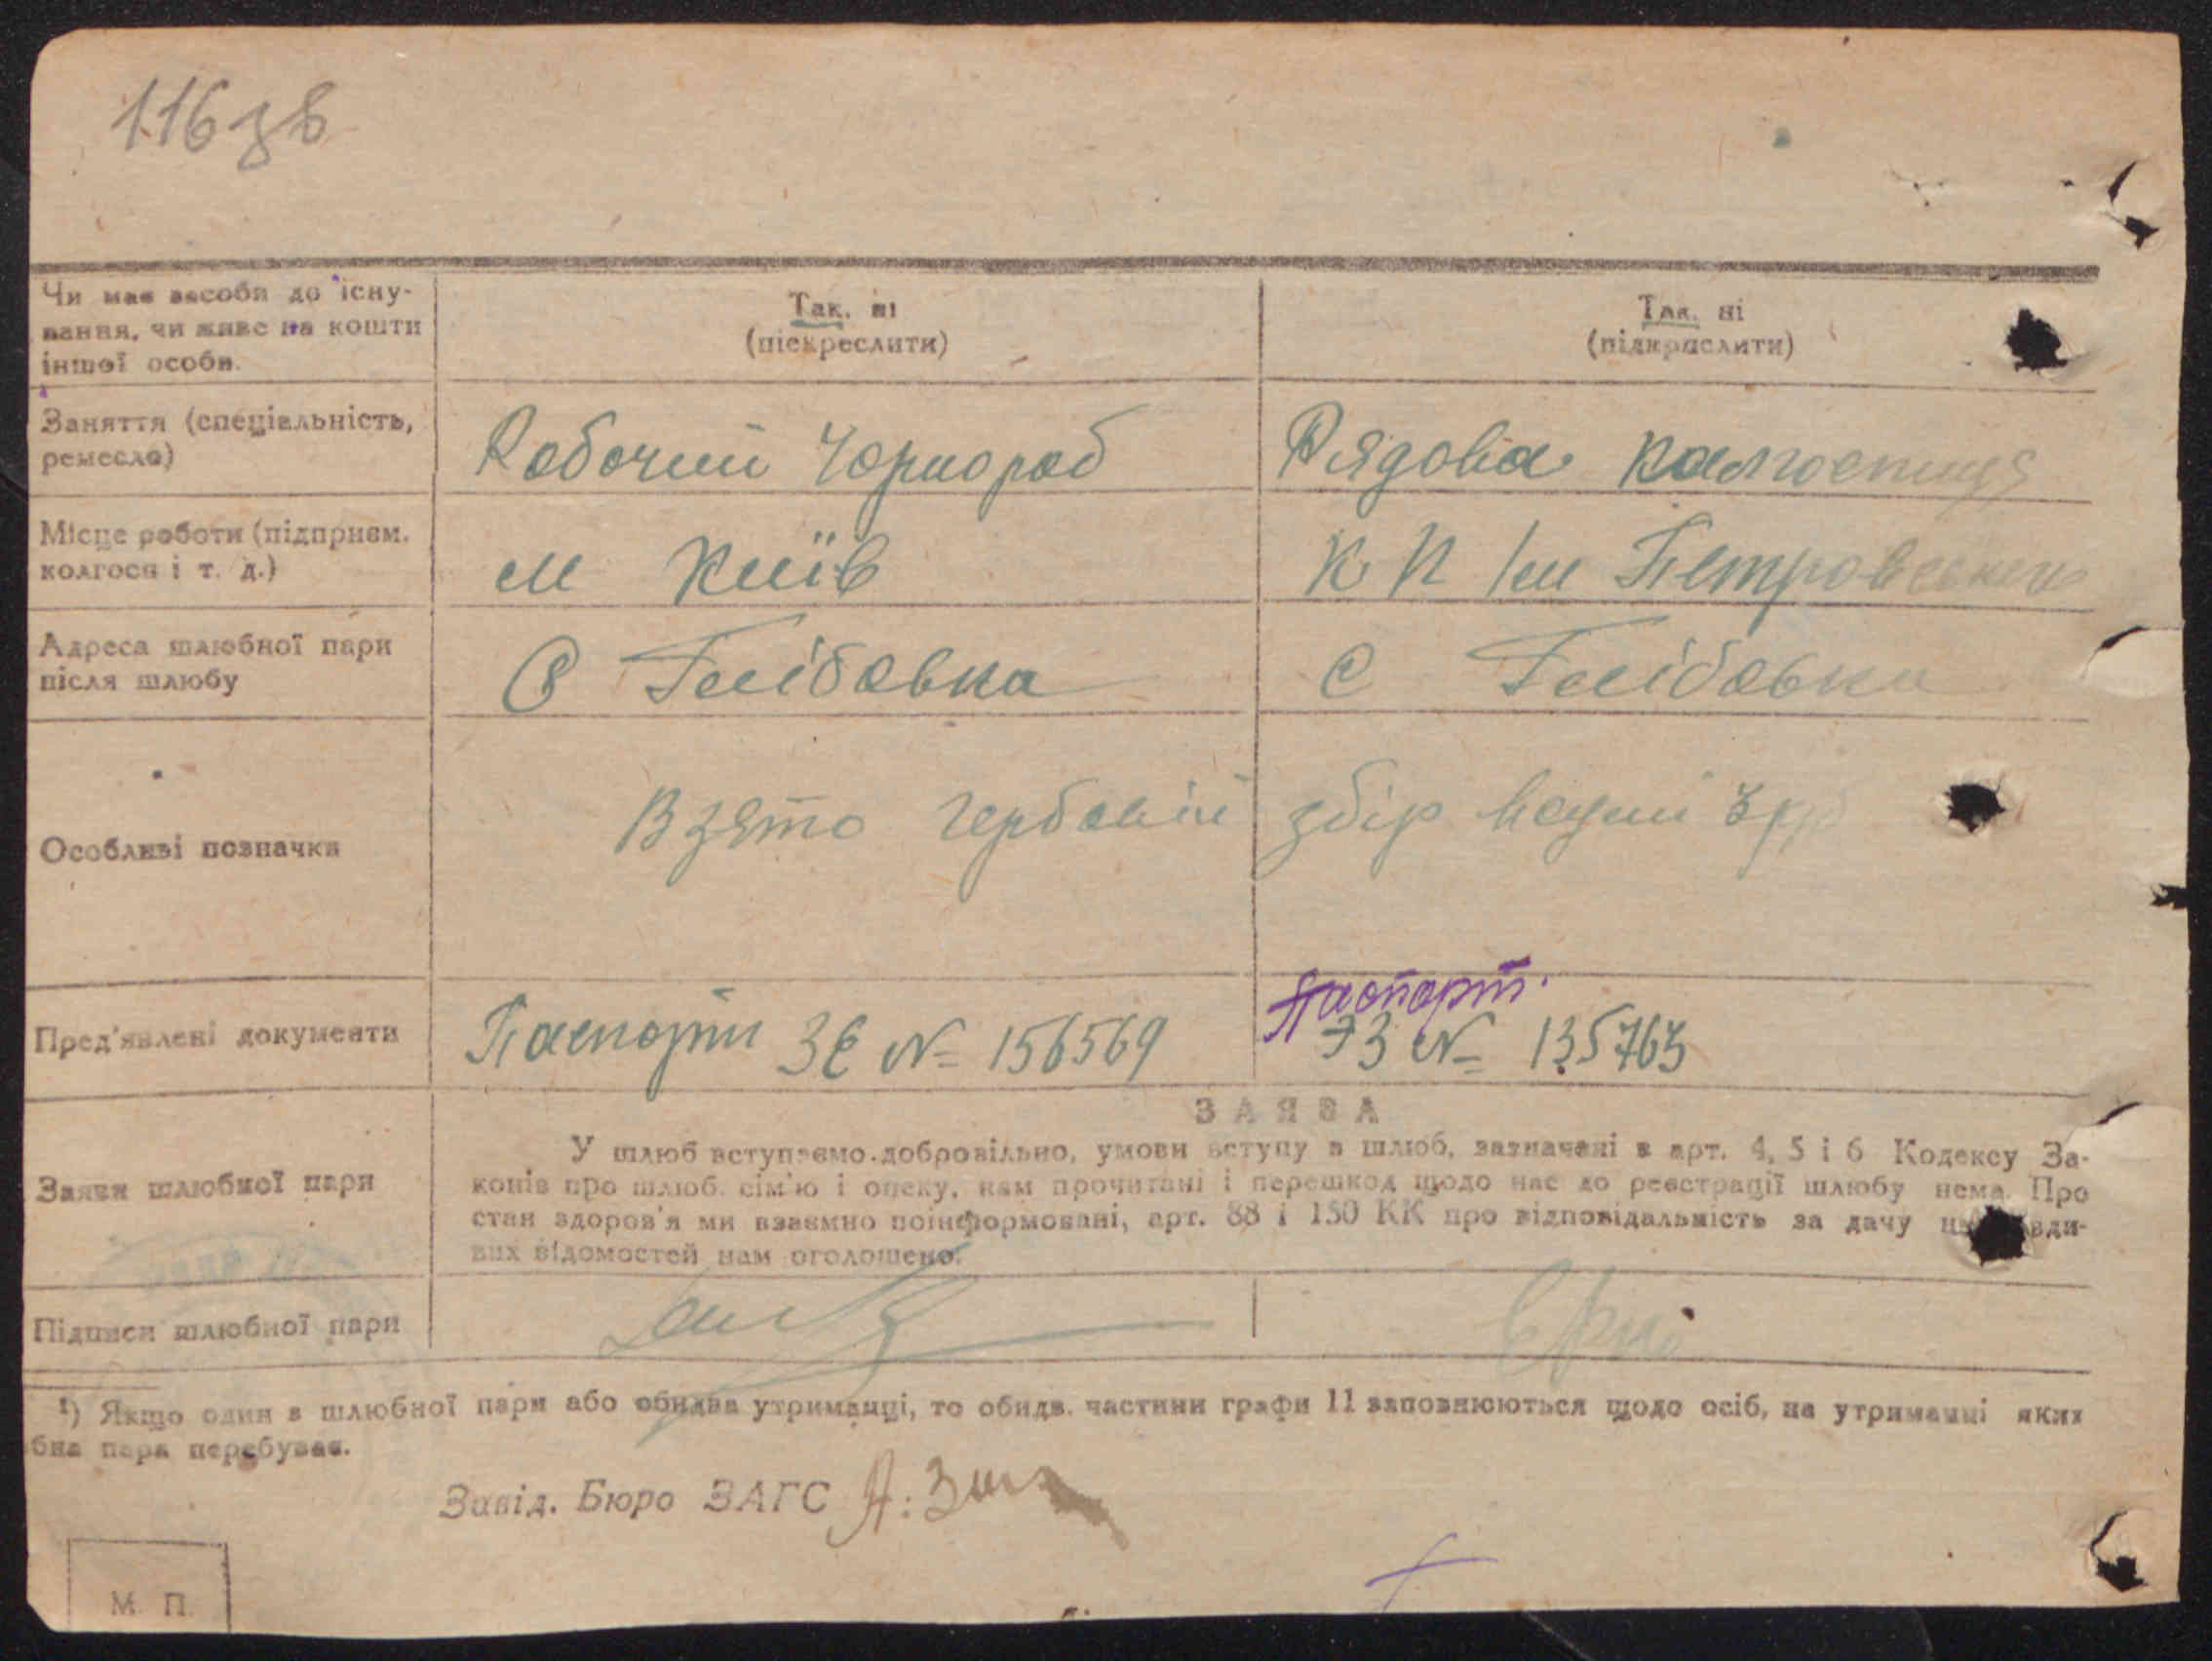 116 зв
Чи має засоби до існу-
вання, чи живе на кошти
іншої особи.
Так. ні
(піскреслити)
Так. ні
(підкрислити)
Заняття (спеціальність,
ремесло)
Робочий Чорнороб
Рядова колгоспниця
Місце роботи (підприєм.
колгосп і т. д.)
м Київ
К П Ім Петровського
Адреса шлюбної пари
після шлюбу
С Глібовка
С Глібовка
Особливі позначки
Взято гербовий збір
Пред'явлені документи
Паспорт ЗЄ № 156569
Паспорт.
ЭЗ № 135763
ЗАЯВА
Заяви шлюбної пари
У шлюб вступаємо добровільно, умови вступу в шлюб, зазначені в арт. 4, 5 і 6 Кодексу За-
конів про шлюб. сім'ю і опеку, нам прочитані і перешкод щодо нас до реєстрації шлюбу нема. Про
стан здоров'я ми взаємно поінформовані, арт. 88 і 130 КК про відповідальність за дачу
вих відомостей нам оголошено.
Підписи шлюбної пари
¹) Якщо один з шлюбної пари або обидва утриманці, то обидв. частини графи 11 заповнюються щодо осіб, на утриманні яких
бна пара перебуває.
Завід. Бюро ЗАГС
М. П.